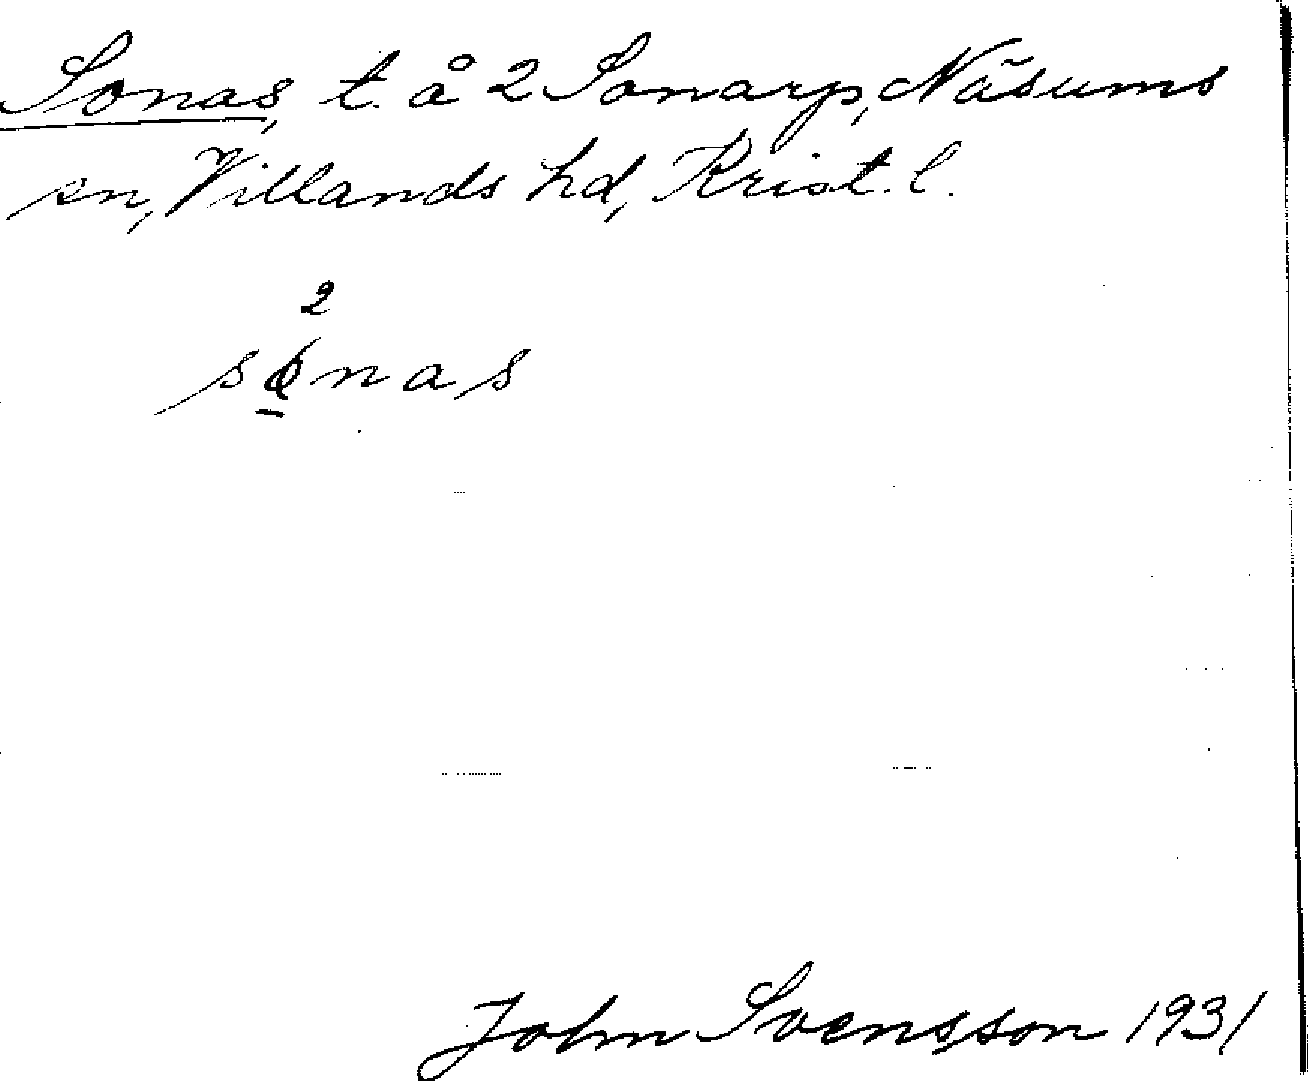 Sonas, t. å 2 Sonarp, Näsums
sn, Villands hd, Krist. l.
2
sonas
John Svensson 1931